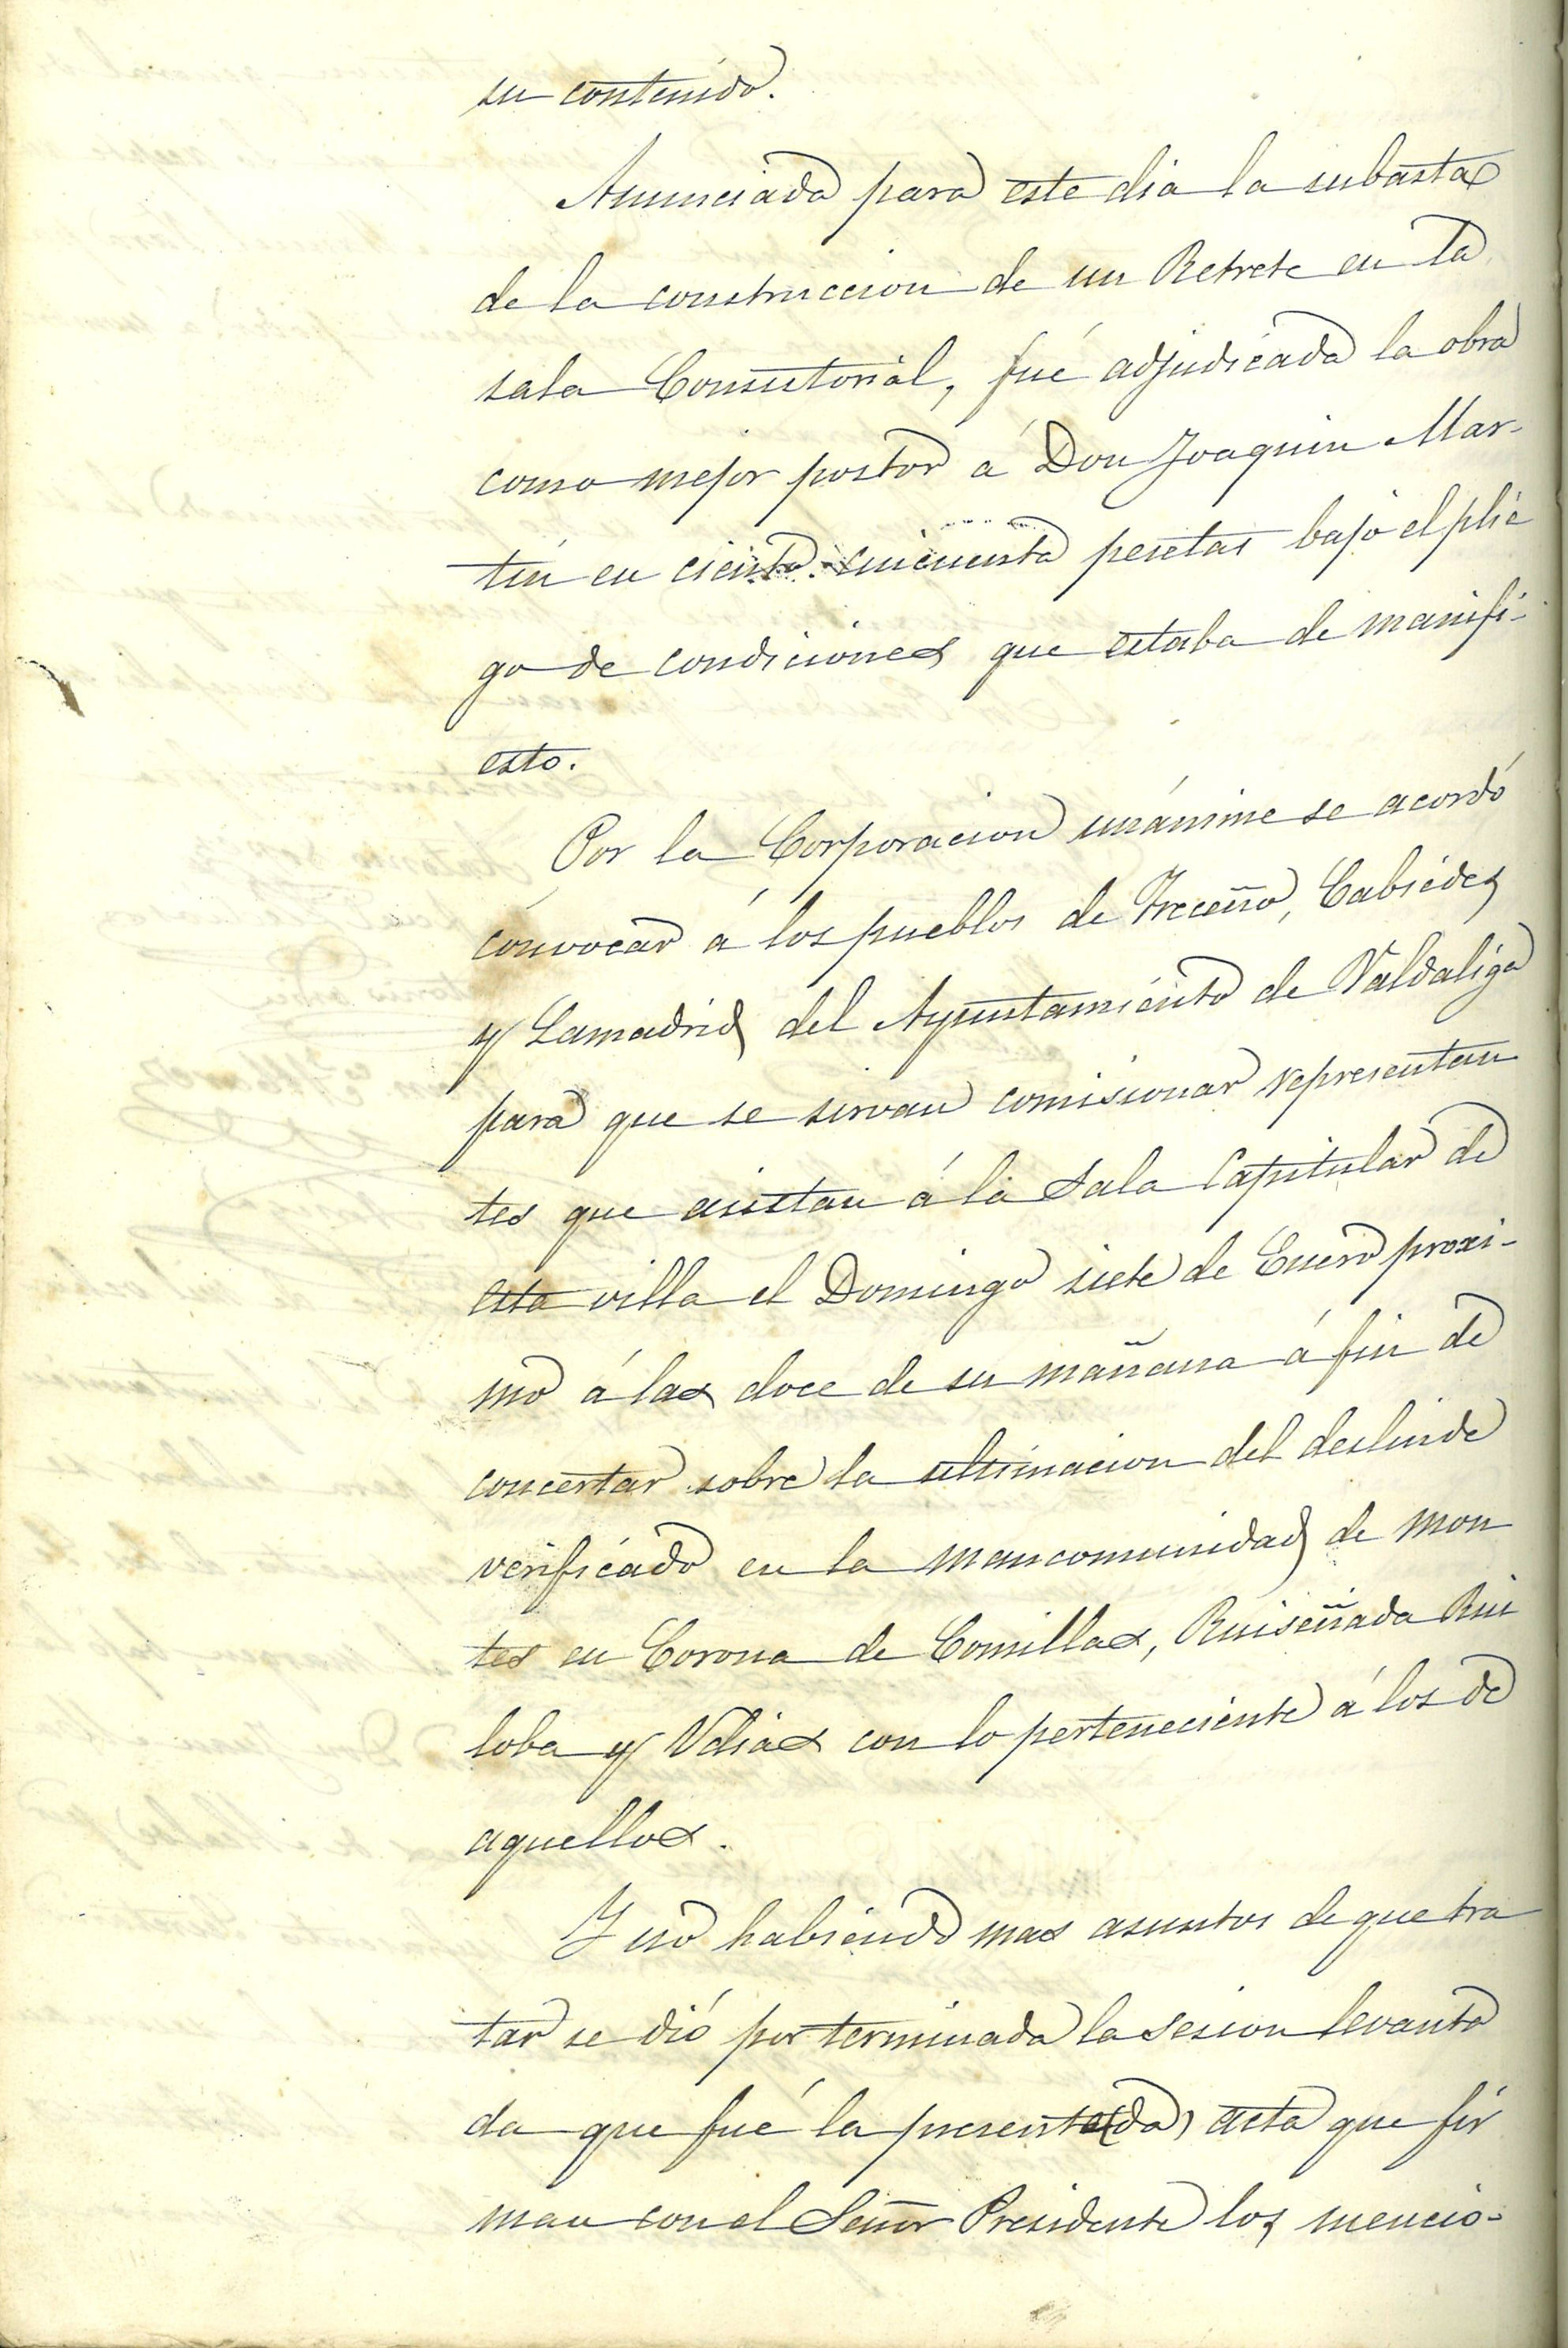 su contenido.
Anunciada para este dia la subasta
de la construccion de un Retrete en la
sala Consistorial, fué adjudicada la obra
como mejor postor á Don Joaquin Mar-
tin en ciento cincuenta pesetas bajo el plie
go de condiciones que estaba de manifi-
esto.
Por la Corporacion unánime se acordó
convocar á los pueblos de Treceño, Cabiédes
y Lamadrid del Ayuntamiento de Valdaliga
para que se sirvan comisionar representan
tes que asistan á la Sala Capitular de
esta villa el Domingo siete de Enero proxi-
mo á las doce de su mañana á fin de
concertar sobre la ultimacion del deslinde
verificado en la mancomunidad de mon
tes en Corona de Comillas, Ruiseñada Rui
loba y Udias con lo perteneciente á los de
aquellos.
Y no habiendo mas asuntos de que tra
tar se dió por terminada la sesion levanta
da que fué la presente (da) acta que fir
man con el Señor Presidente los mencio-